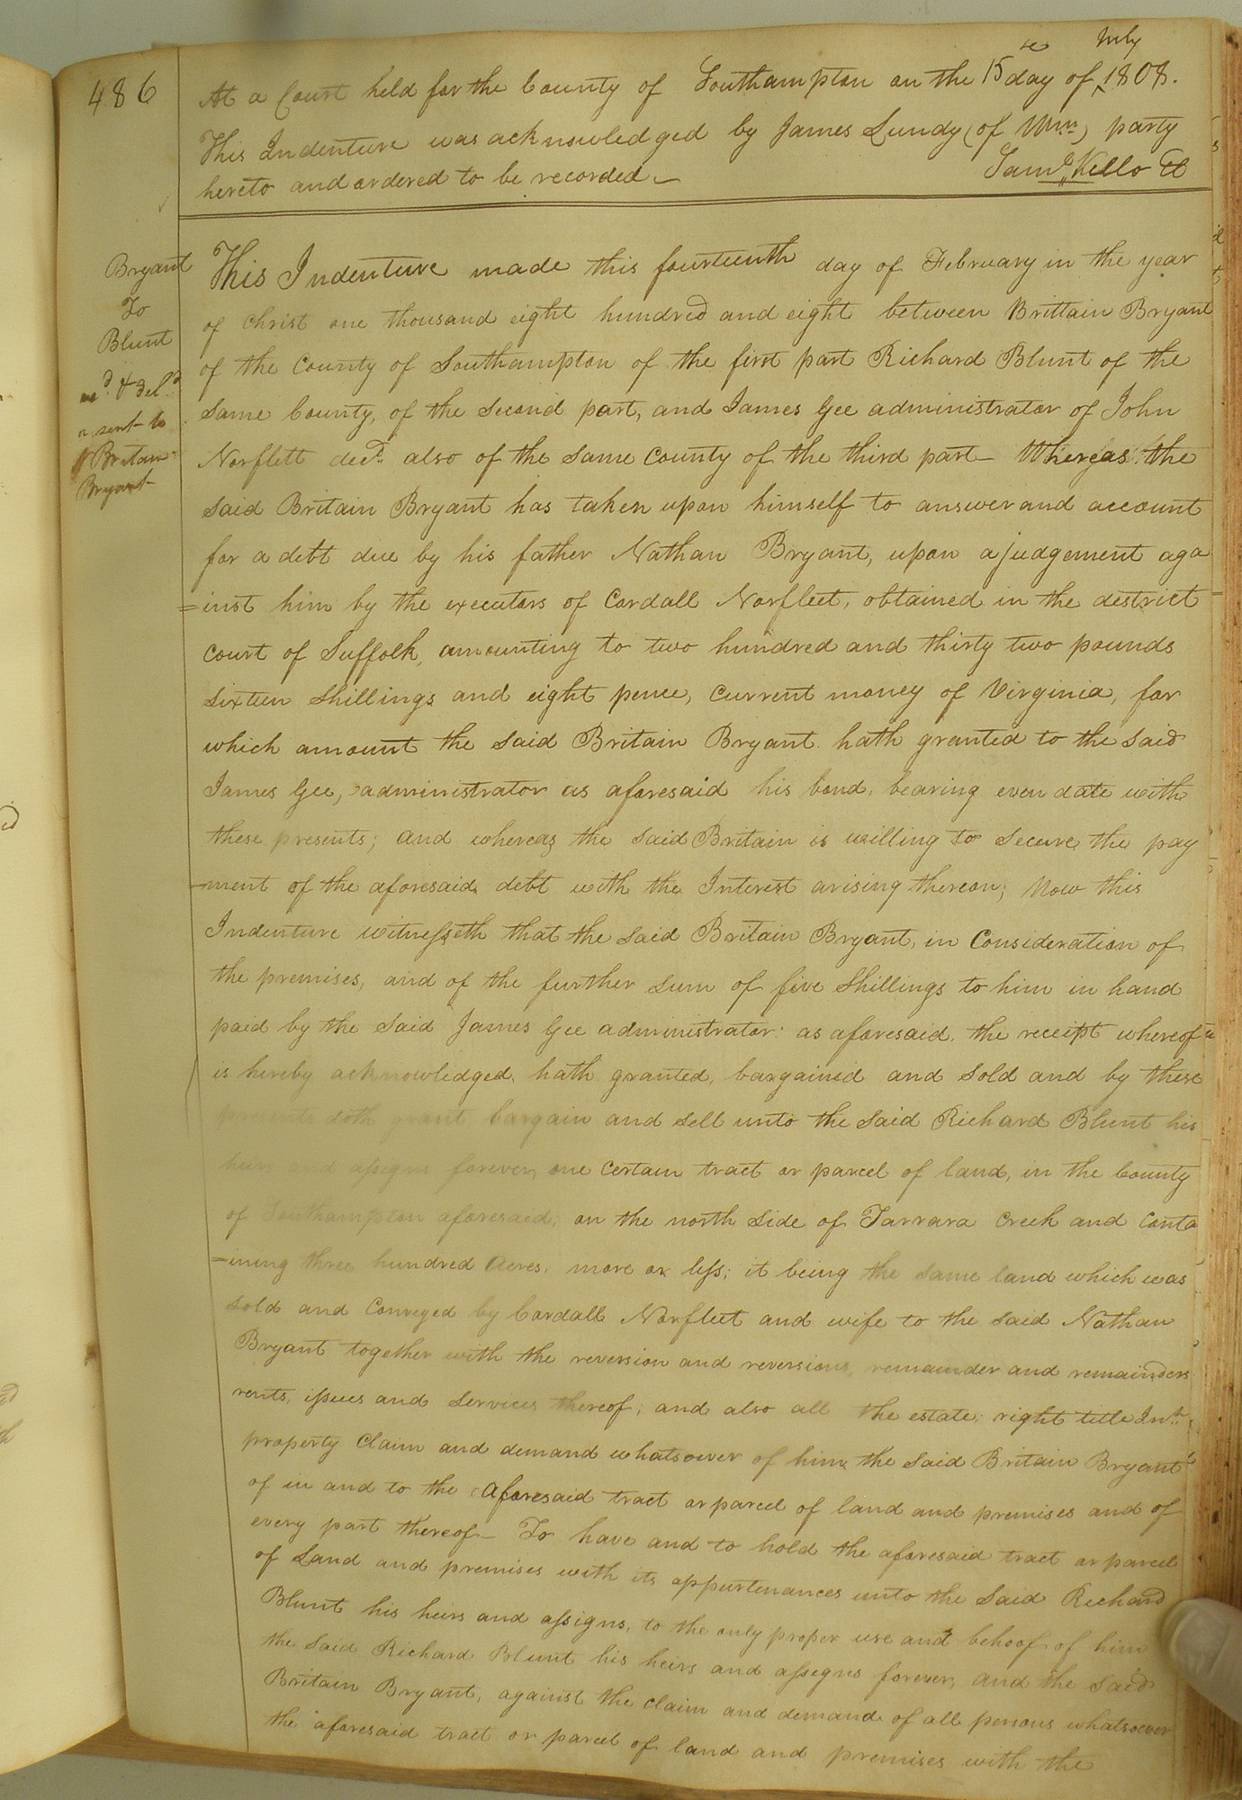 486
At a Court held for the County of Southampton on the 15th day of July 1808.
This Indenture was acknowledged by James Lundy (of Wm) party
hereto and ordered to be recorded_
Saml. Kello Cl
Bryant
To
Blunt
d. & Deld
sent to
Britain
Bryant
This Indenture made this fourteenth day of February in the year
of christ one thousand eight hundred and eight between Brittain Bryant
of the County of Southampton of the first part Richard Blunt of the
Same County, of the Second part, and James Gee administrator of John
Norflett decd. also of the Same County of the third part_ Whereas the
said Britain Bryant has taken upon himself to answer and account
for a debt due by his father Nathan Bryant, upon a judgement aga
=inst him by the executors of Cordall Norfleet, obtained in the destrict
court of Suffolk, amounting to two hundred and thirty two pounds
sixteen shillings and eight pence, current money of Virginia, for
which amount the said Britain Bryant hath granted to the said
James Gee, administrator as aforesaid his bond, bearing even date with
these presents; and whereas the said Britain is willing to secure the pay
-ment of the aforesaid debt with the Interest arising thereon; Now this
Indenture witnesseth that the said Britain Bryant, in Consideration of
the premises, and of the further sum of five Shillings to him in hand
paid by the said James Gee administrator as aforesaid, the receipt whereof
is hereby acknowledged, hath granted, bargained and sold and by these
presents doth grant bargain and sell unto the said Richard Blunt his
heirs and assigns forever, one certain tract or parcel of land, in the County
of Southampton aforesaid, on the north side of Tarrara Creek and Conta
=ining three hundred Acres, more or less; it being the same land which was
sold and Conveyed by Cordall Norfleet and wife to the said Nathan
Bryant together with the reversion and reversions, remainder and remainders
rents, issues and services thereof; and also all the estate, right title Int.
property claim and demand whatsoever of him the said Britain Bryant
of in and to the aforesaid tract or parcel of land and premises and of
every part thereof_ To have and to hold the aforesaid tract or parcel
of Land and premises with its appurtenances unto the said Richard
Blunt his heirs and assigns, to the only proper use and behoof of him
the said Richard Blunt his heirs and assigns forever, and the said
Britain Bryant, against the claim and demand of all persons whatsoever
the aforesaid tract or parcel of land and premises with the